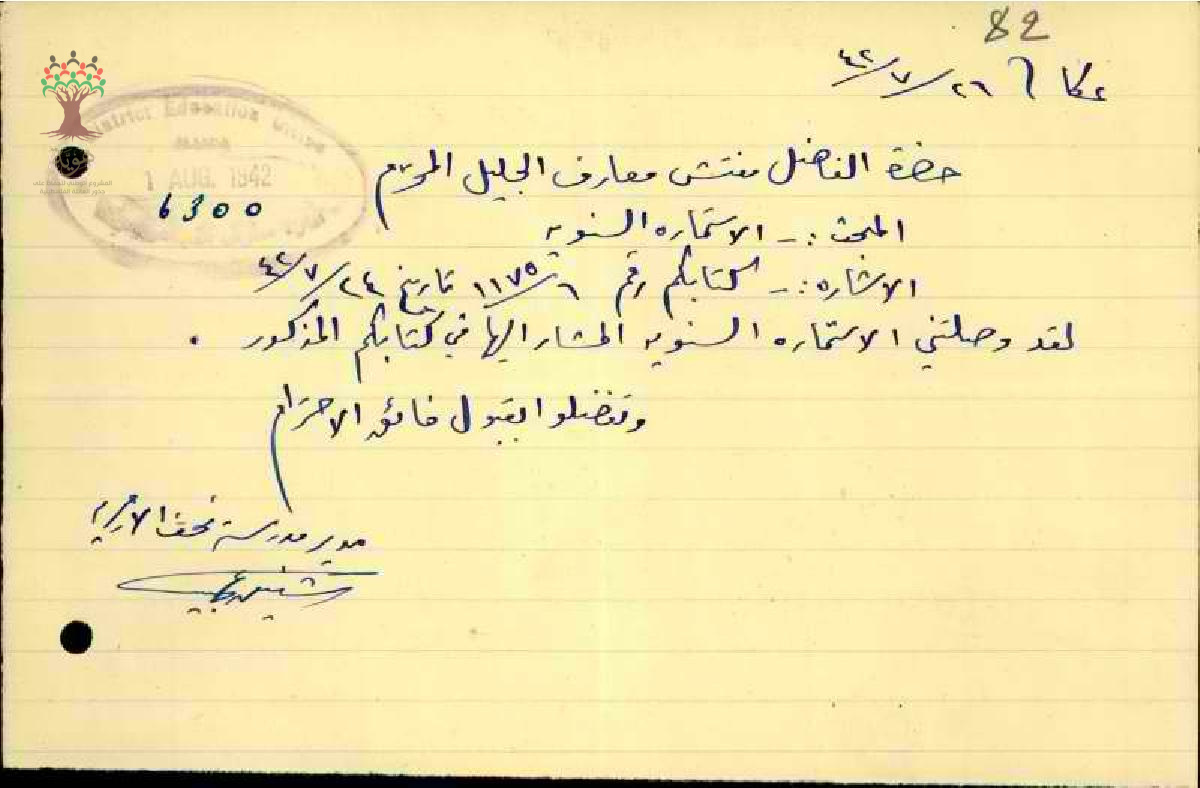 82
عكا في ٢٦/٧/٤٢
District Education Office
1 AUG. 1942
6300
حضرة الفاضل مفتش معارف الجليل المحترم
المبحث :- الاستماره السنويه
الاشاره :- كتابكم رقم ١١٧٥/٦ تاريخ ٢٤/٧/٤٢
لقد وصلتني الاستماره السنويه المشار اليها في كتابكم المذكور .
وتفضلوا بقبول فائق الاحترام
مدير مدرسة نحف الاميريه